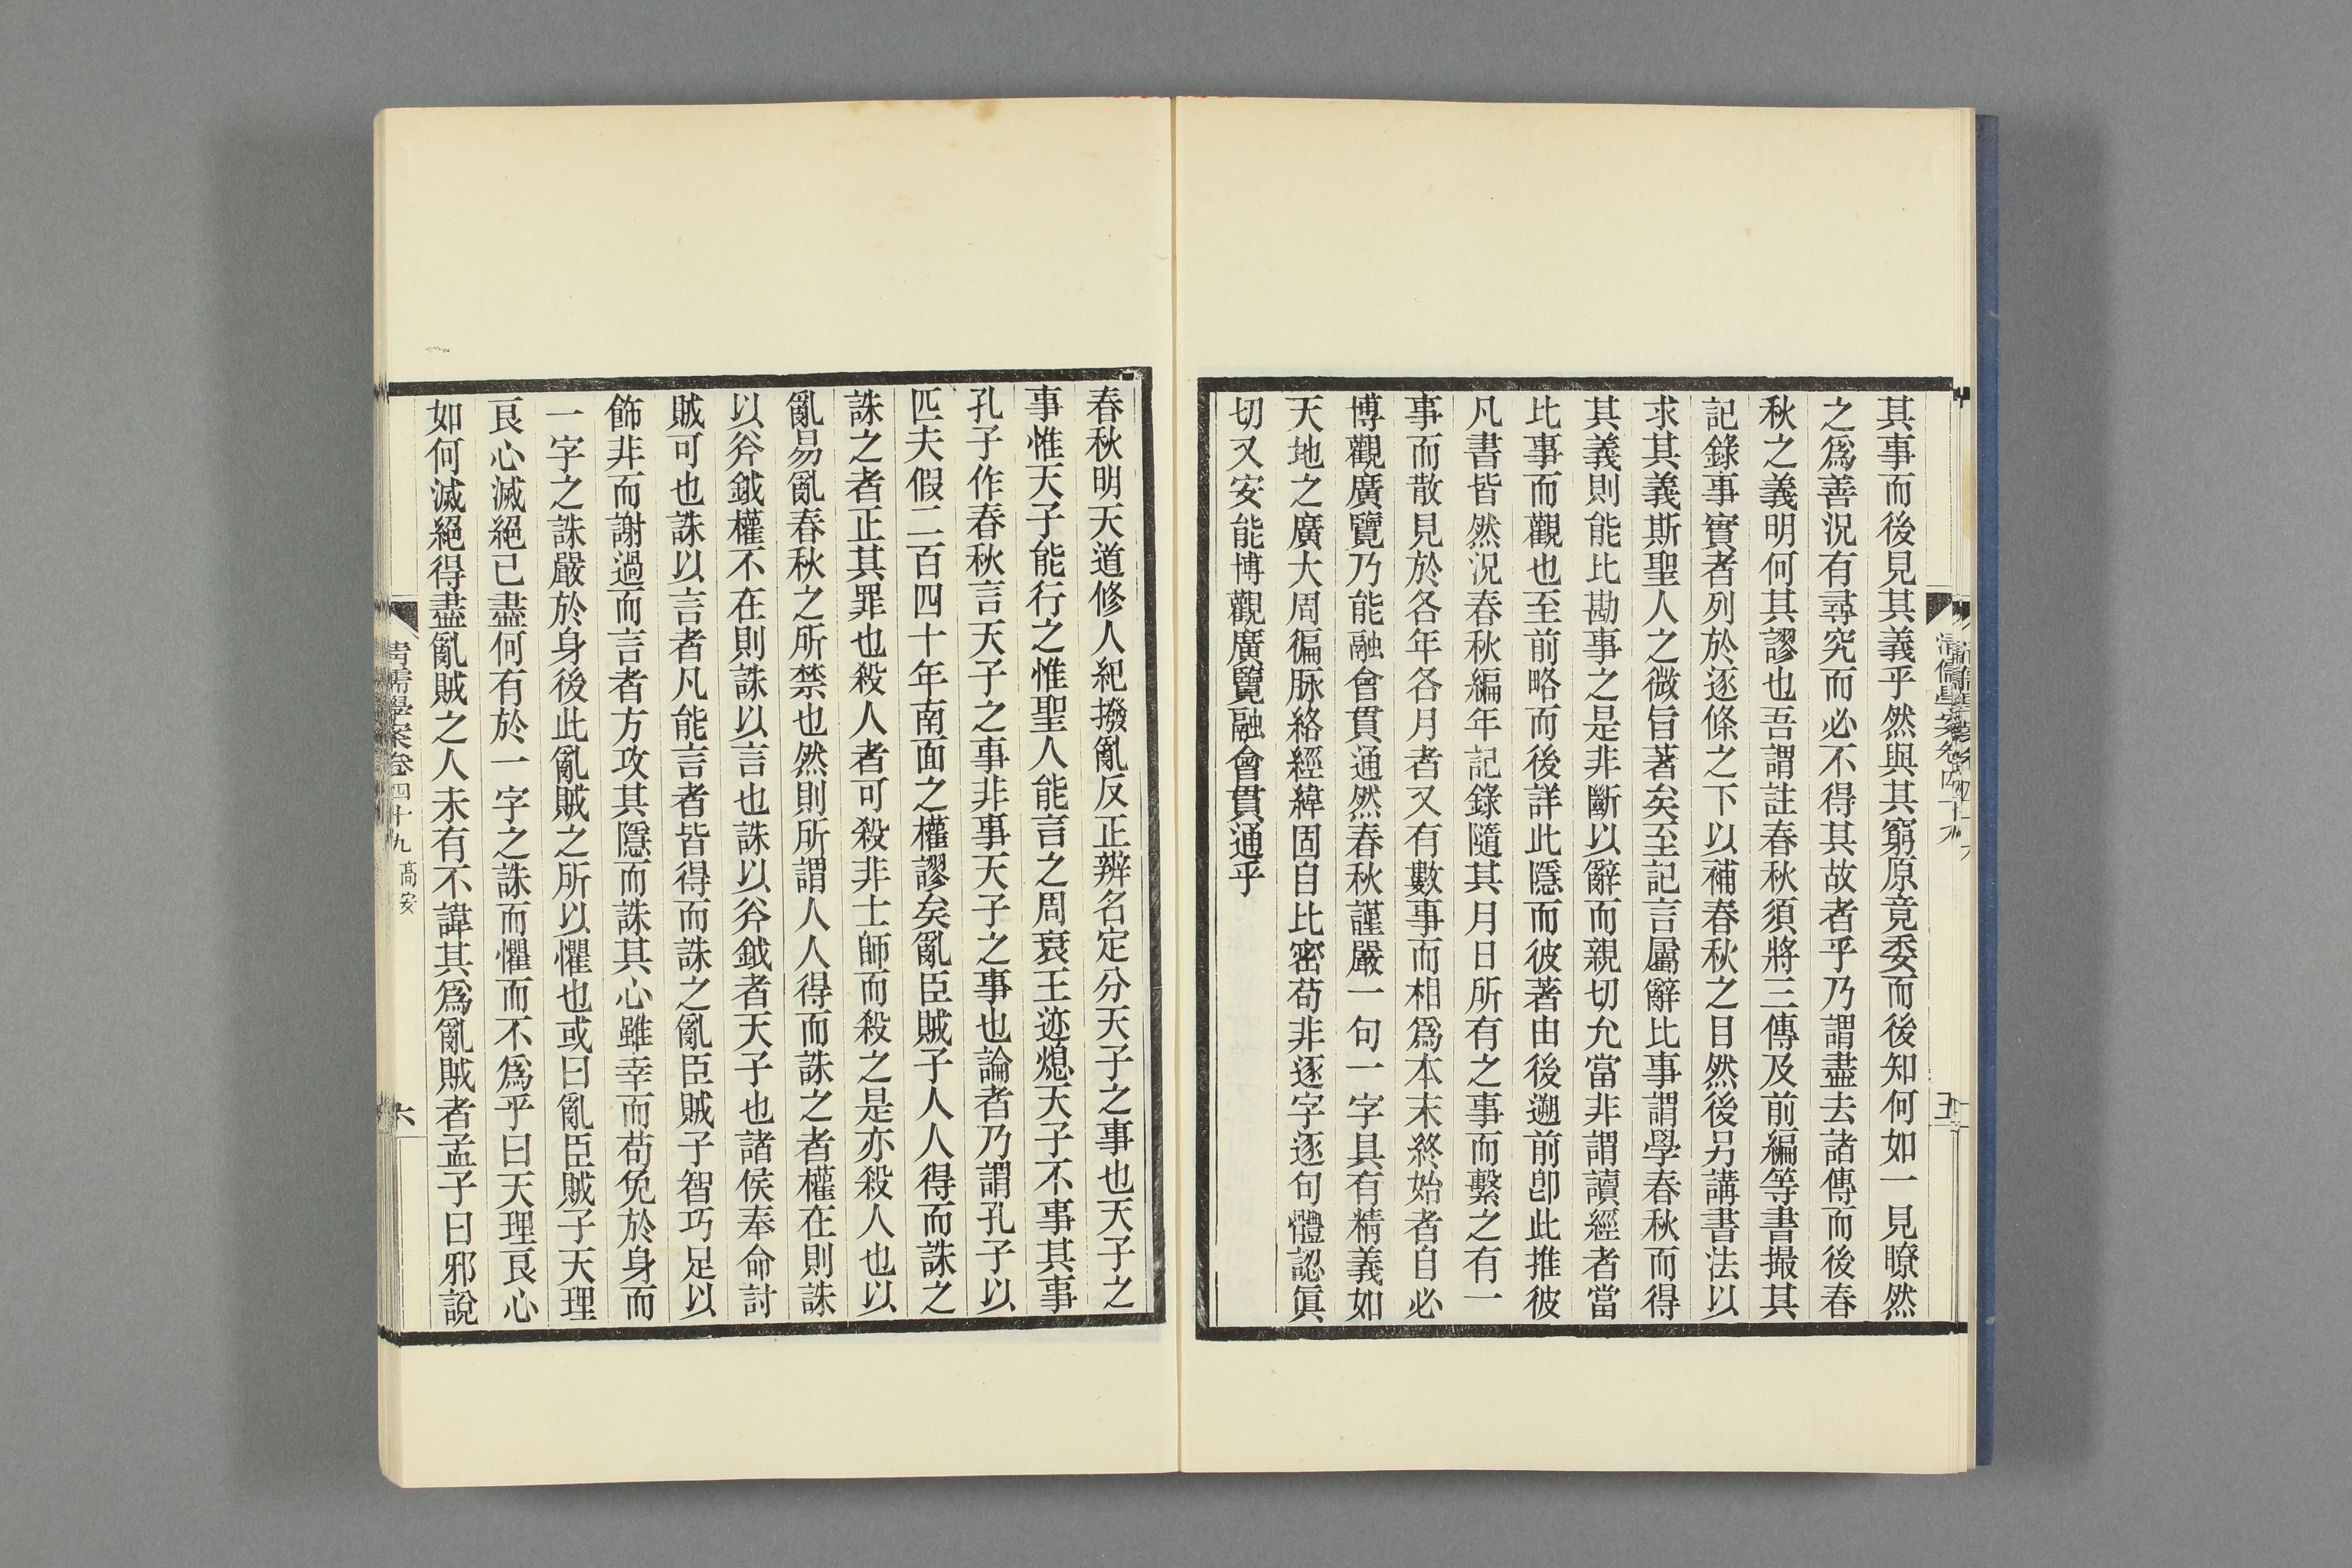 其事而後見其義乎然與其窮原竟委而後知何如一見瞭然
之爲善況有尋究而必不得其故者乎乃謂盡去諸傳而後春
秋之義明何其謬也吾謂註春秋須將三傳及前編等書撮其
記錄事實者列於逐條之下以補春秋之目然後另講書法以
求其義斯聖人之微旨著矣至記言屬辭比事謂學春秋而得
其義則能比勘事之是非斷以辭而親切允當非謂讀經者當
比事而觀也至前略而後詳此隱而彼著由後遡前卽此推彼
凡書皆然況春秋編年記錄隨其月日所有之事而繫之有一
事而散見於各年各月者又有數事而相爲本末終始者自必
博觀廣覽乃能融會貫通然春秋謹嚴一句一字具有精義如
天地之廣大周徧脉絡經緯固自比密苟非逐字逐句體認眞
切又安能博觀廣覽融會貫通乎
春秋明天道修人紀撥亂反正辨名定分天子之事也天子之
事惟天子能行之惟聖人能言之周衰王迹熄天子不事其事
孔子作春秋言天子之事非事天子之事也論者乃謂孔子以
匹夫假二百四十年南面之權謬矣亂臣賊子人人得而誅之
誅之者正其罪也殺人者可殺非士師而殺之是亦殺人也以
亂易亂春秋之所禁也然則所謂人人得而誅之者權在則誅
以斧鉞權不在則誅以言也誅以斧鉞者天子也諸侯奉命討
賊可也誅以言者凡能言者皆得而誅之亂臣賊子智巧足以
飾非而謝過而言者方攻其隱而誅其心雖幸而苟免於身而
一字之誅嚴於身後此亂賊之所以懼也或曰亂臣賊子天理
良心滅絕已盡何有於一字之誅而懼而不爲乎曰天理良心
如何滅絕得盡亂賊之人未有不諱其爲亂賊者孟子曰邪說
清儒學案卷四十九 高安
六